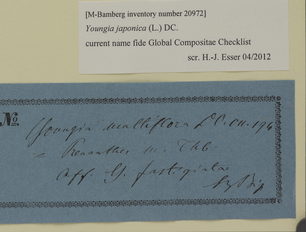 [M-Bamberg inventory number 20972]
Youngia japonica (L.) DC.
current name fide Global Compositae Checklist
scr. H.-J. Esser 04/2012
No
Youngia multiflora DC. 194
= Prenanthes m. Thb.
Aff. Y. fastigiatae